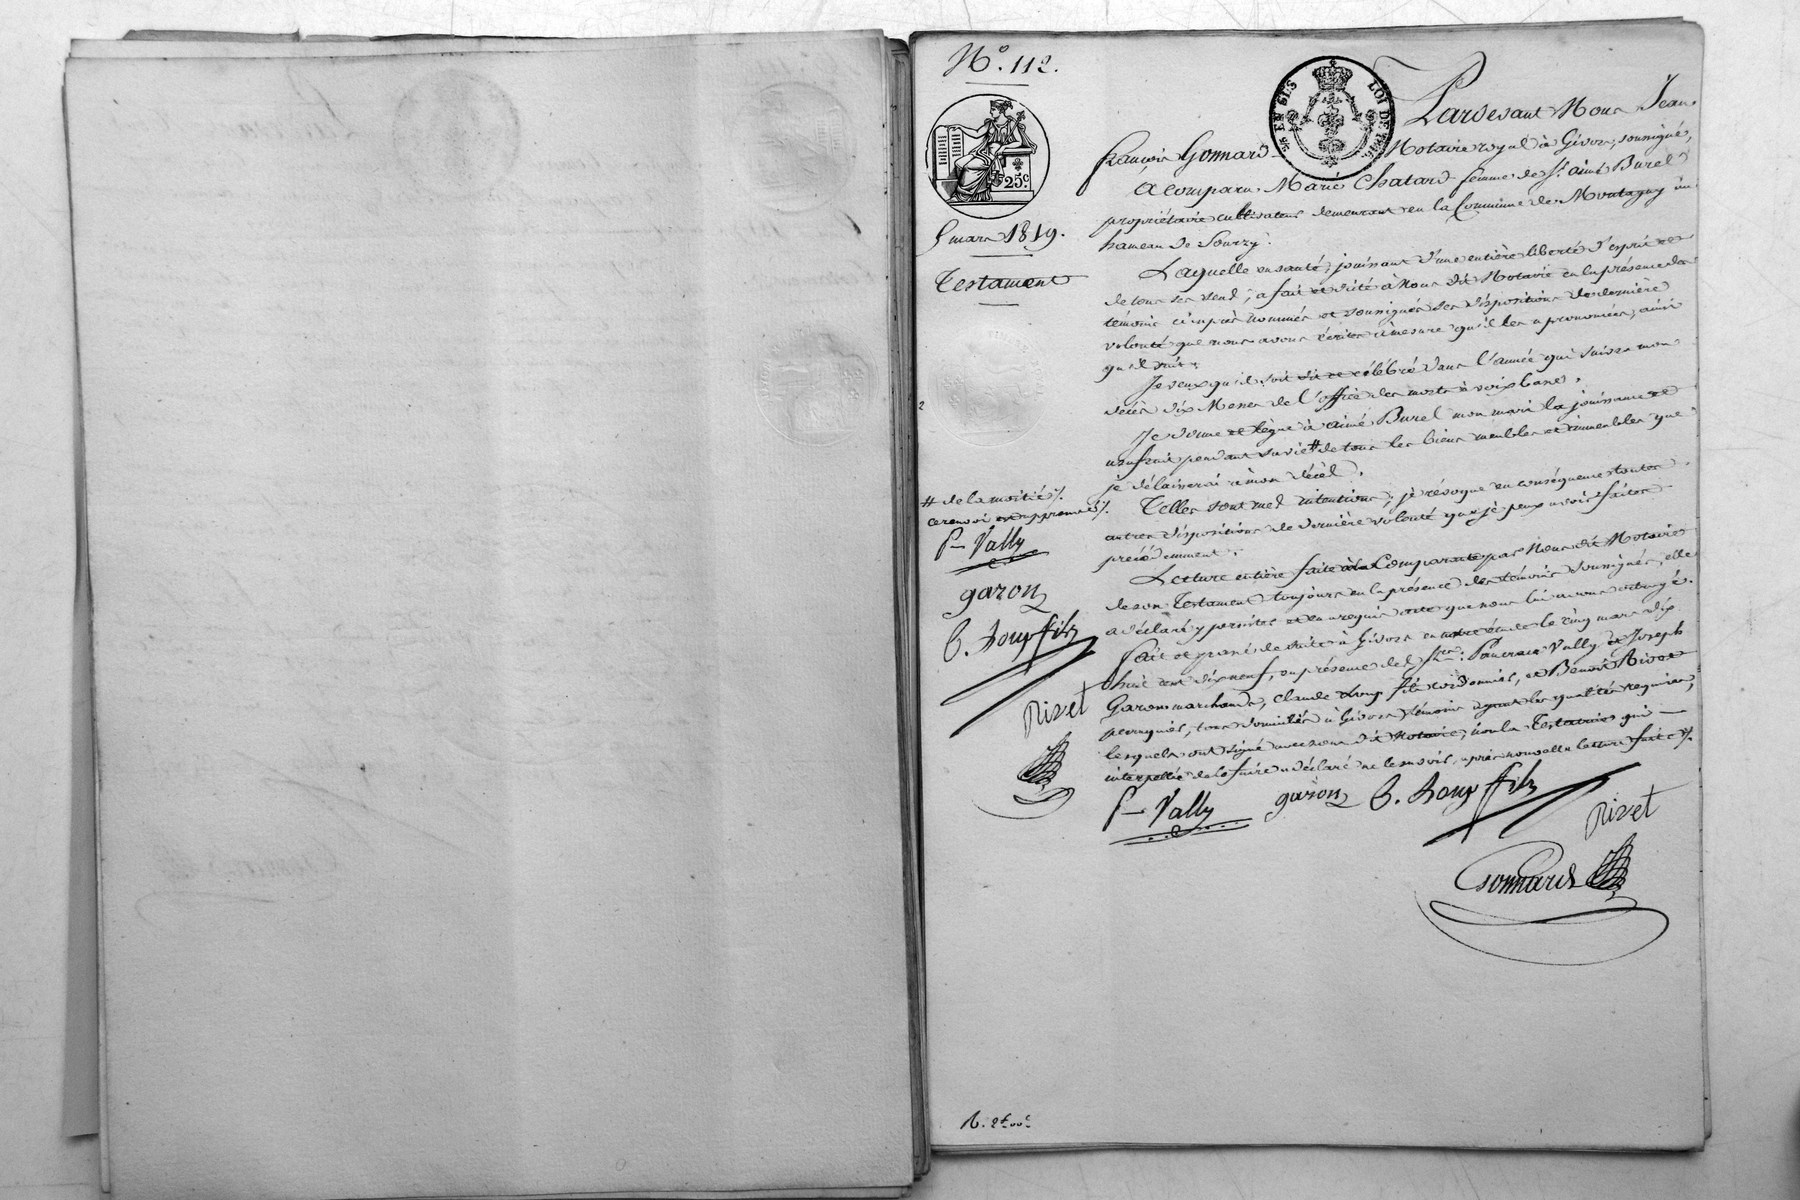 N.° 112.
25 EN SUS
LOI DE 1816
25c
5 mars 1819.
Testament
Pardevant Nous Jean
françois Gonnard Notaire royal à Givors, soussigné,
A comparu Marie Chatard femme de Sr. aimé Burel
propriétaire cultivateur demeurant en la Commune de Montagny au
hameau de Sourzy.
Laquelle en santé, jouissant d'une entière liberté d'esprit et
de tous ses sens, a fait et dicté à Nous dit Notaire en la présence des
témoins ci après nommés et soussignés ses dispositions de dernière
volonté que nous avons écrites à mesure qu'il les a prononcées, ainsi
qu'il suit:
Je veux qu'il soit dit et célébré dans l'année qui suivra mon
décès dix Messes de l'office des morts à voix basse.
Je donne et lègue à aimé Burel mon mari la jouissance et
usufruit pendant sa vie # de tous les biens meubles et immeubles que
je délaisserai à mon décès.
Telles sont mes intentions; je révoque en conséquence toutes
autres dispositions de dernière volonté que je peux avoir faites
précédemment.
Lecture entière faite à la Comparante par Nous dit Notaire
de son Testament toujours en la présence des témoins soussignés, elle
a déclaré y persister et en a requis acte que nous lui avons octroyé.
fait et passé de suite à Givors en notre étude le cinq mars dix
huit cent dix neuf, en présence des Srs. Pancrace Vally et Joseph
Garon marchands, Claude Loup fils cordonnier, et Benoit Rivet
perruquier, tous domiciliés à Givors témoins ayant les qualités requises,
lesquels ont signé avec nous dit Notaire, non la Testatrice qui
interpellée de le faire a déclaré ne le savoir, après nouvelle lecture faite ./.
P Vally
garon
C. Loup fils
Rivet
Gonnard
# de la moitié ./.
ce renvoi est approuvé ./.
P Vally
garon
C. Loup fils
Rivet
R. 2f 00c